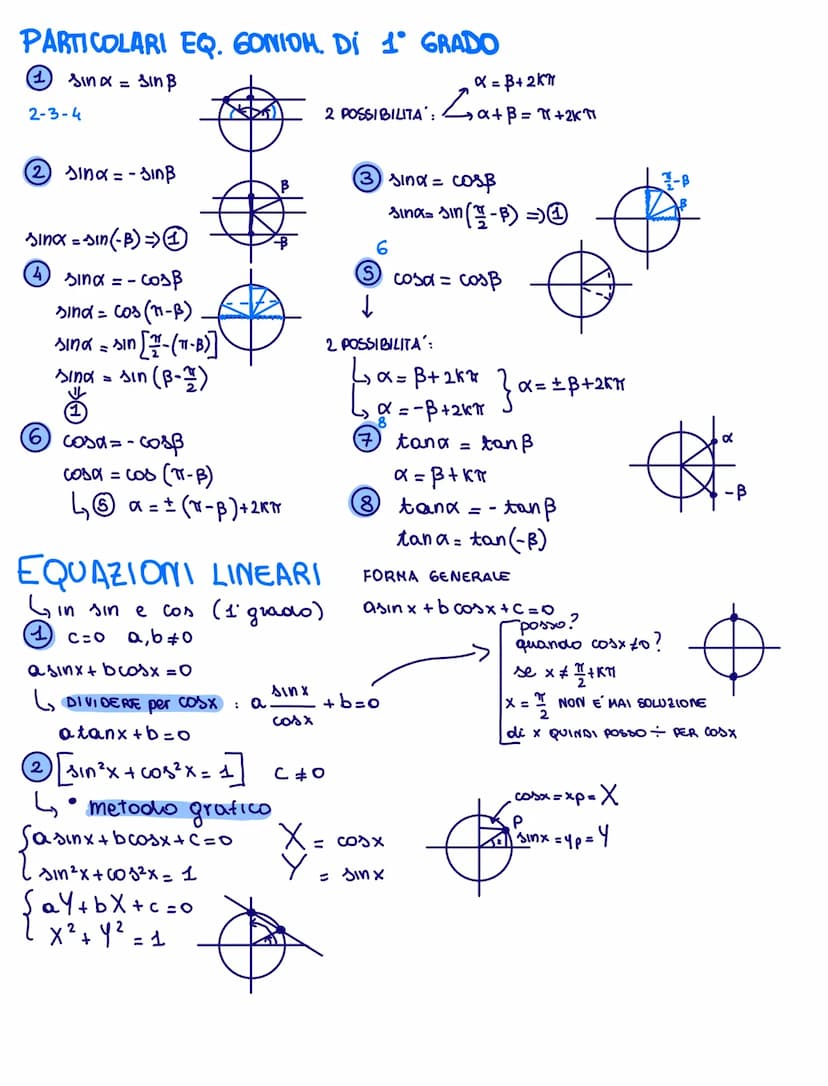 PARTICOLARI EQ. GONIOM. Dí 1° GRADO
① sinα = sinβ
2-3-4
2 POSSIBILITA': α = β+2kπ
α+β = π+2kπ
② sinα = - sinβ
β
-β
sinα = sin(-β) ⇒ ①
③ sinα = cosβ
sinα = sin(π/2 - β) ⇒ ①
π/2 - β
β
④ sinα = - cosβ
sinα = cos(π-β)
sinα = sin[π/2 - (π-β)]
sinα = sin(β - π/2)
⇓
①
6
⑤ cosα = cosβ
↓
2 POSSIBILITA':
↳ α = β+2kπ
↳ α = -β+2kπ
} α = ±β+2kπ
⑥ cosα = - cosβ
cosα = cos(π-β)
↳ ⑤ α = ±(π-β)+2kπ
8
⑦ tanα = tanβ
α = β+kπ
α
-β
⑧ tanα = - tanβ
tanα = tan(-β)
EQUAZIONI LINEARI
↳ in sin e cos (1° grado)
FORMA GENERALE
asinx + bcosx + c = 0
① c=0 a,b≠0
asinx + bcosx = 0
↳ DIVIDERE per cosx : a sinx/cosx + b = 0
atanx + b = 0
posso?
quando cosx≠0?
se x ≠ π/2 + kπ
x = π/2 NON E' MAI SOLUZIONE
di x QUINDI POSSO ÷ PER COSX
② [sin²x + cos²x = 1] c ≠ 0
↳ • metodo grafico
{ asinx + bcosx + c = 0
sin²x + cos²x = 1
X = cosx
Y = sinx
cosx = xp = X
P
sinx = yp = Y
{ aY + bX + c = 0
X² + Y² = 1